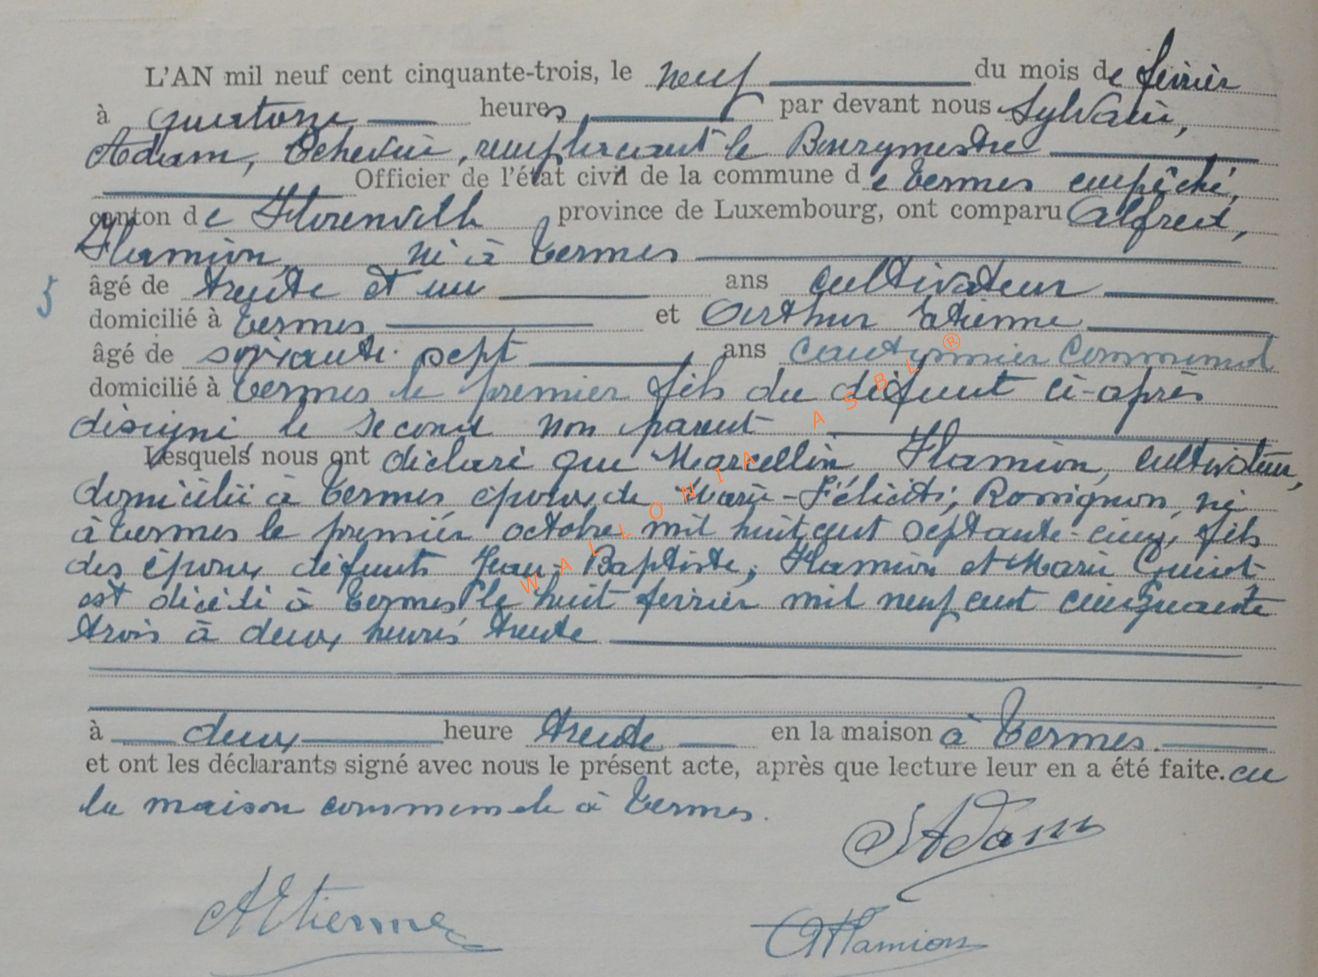 L'AN mil neuf cent cinquante-trois, le neuf du mois de février
à quatorze heures par devant nous Sylvain,
Adam, Echevin, remplaçant le Bourgmestre
Officier de l'état civil de la commune de Termes empêché,
canton de Florenville province de Luxembourg, ont comparu Alfred,
Flamion né à Termes
5 âgé de trente et un ans cultivateur
domicilié à Termes et Arthur Etienne
âgé de soixante-sept ans cantonnier communal
domicilié à Termes le premier fils du défunt ci-après
désigné, le second non parent
Lesquels nous ont déclaré que Marcellin Flamion, cultivateur,
domicilié à Termes époux de Marie-Félicité, Rossignon, né
à Termes le premier octobre mil huit cent septante-cinq, fils
des époux défunts Jean-Baptiste, Flamion et Marie Guiot
est décédé à Termes le huit février mil neuf cent cinquante
trois à deux heures trente
à deux heure trente en la maison à Termes.
et ont les déclarants signé avec nous le présent acte, après que lecture leur en a été faite. en
la maison communale à Termes.
SAdam
AEtienne
AFlamion
WALLONIA ASBL ®